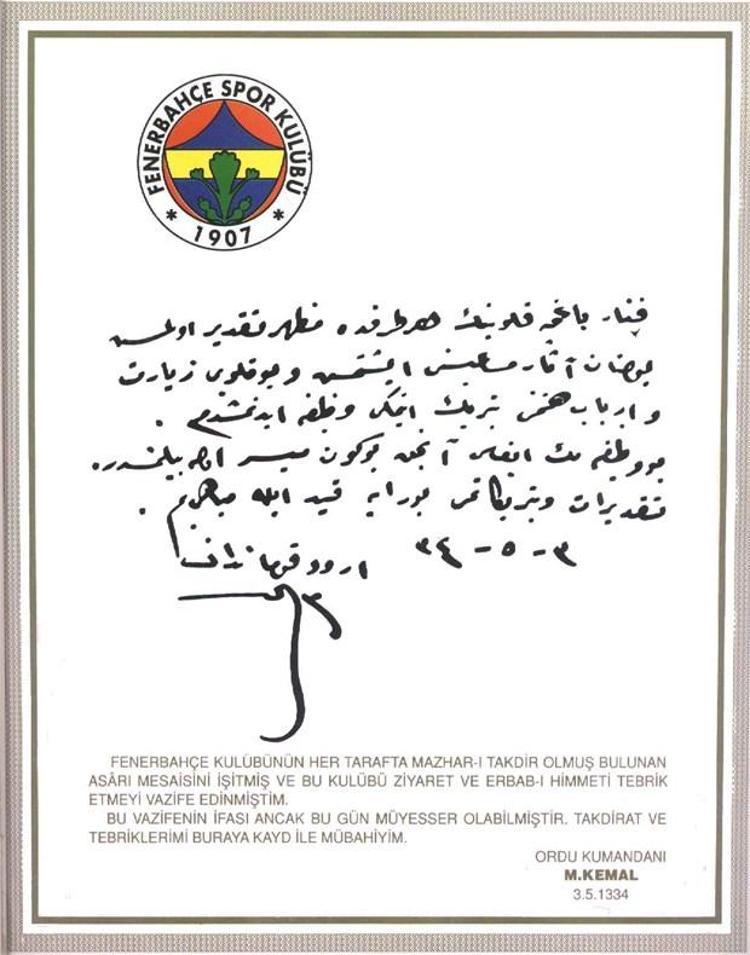 FENERBAHÇE SPOR KULÜBÜ
* 1907 *
فنار باغچه قلوبنك هر طرفده مظهر تقدير اولمش
بولنان آثار مساعيسنى ايشتمش و بو قلوبى زيارت
و ارباب همتى تبريك ايتمكى وظيفه ايدنمشدم .
بو وظيفه نك ايفاسى آنجق بوكون ميسر اوله بيلمشدر.
تقديرات و تبريكاتمى بورايه قيد ايله مباهى يم .
٣ - ٥ - ٣٤ اردو قوماندانى
FENERBAHÇE KULÜBÜNÜN HER TARAFTA MAZHAR-I TAKDİR OLMUŞ BULUNAN
ASÂRI MESAİSİNİ İŞİTMİŞ VE BU KULÜBÜ ZİYARET VE ERBAB-I HİMMETİ TEBRİK
ETMEYİ VAZİFE EDİNMİŞTİM.
BU VAZİFENİN İFASI ANCAK BU GÜN MÜYESSER OLABİLMİŞTİR. TAKDİRAT VE
TEBRİKLERİMİ BURAYA KAYD İLE MÜBAHİYİM.
ORDU KUMANDANI
M.KEMAL
3.5.1334